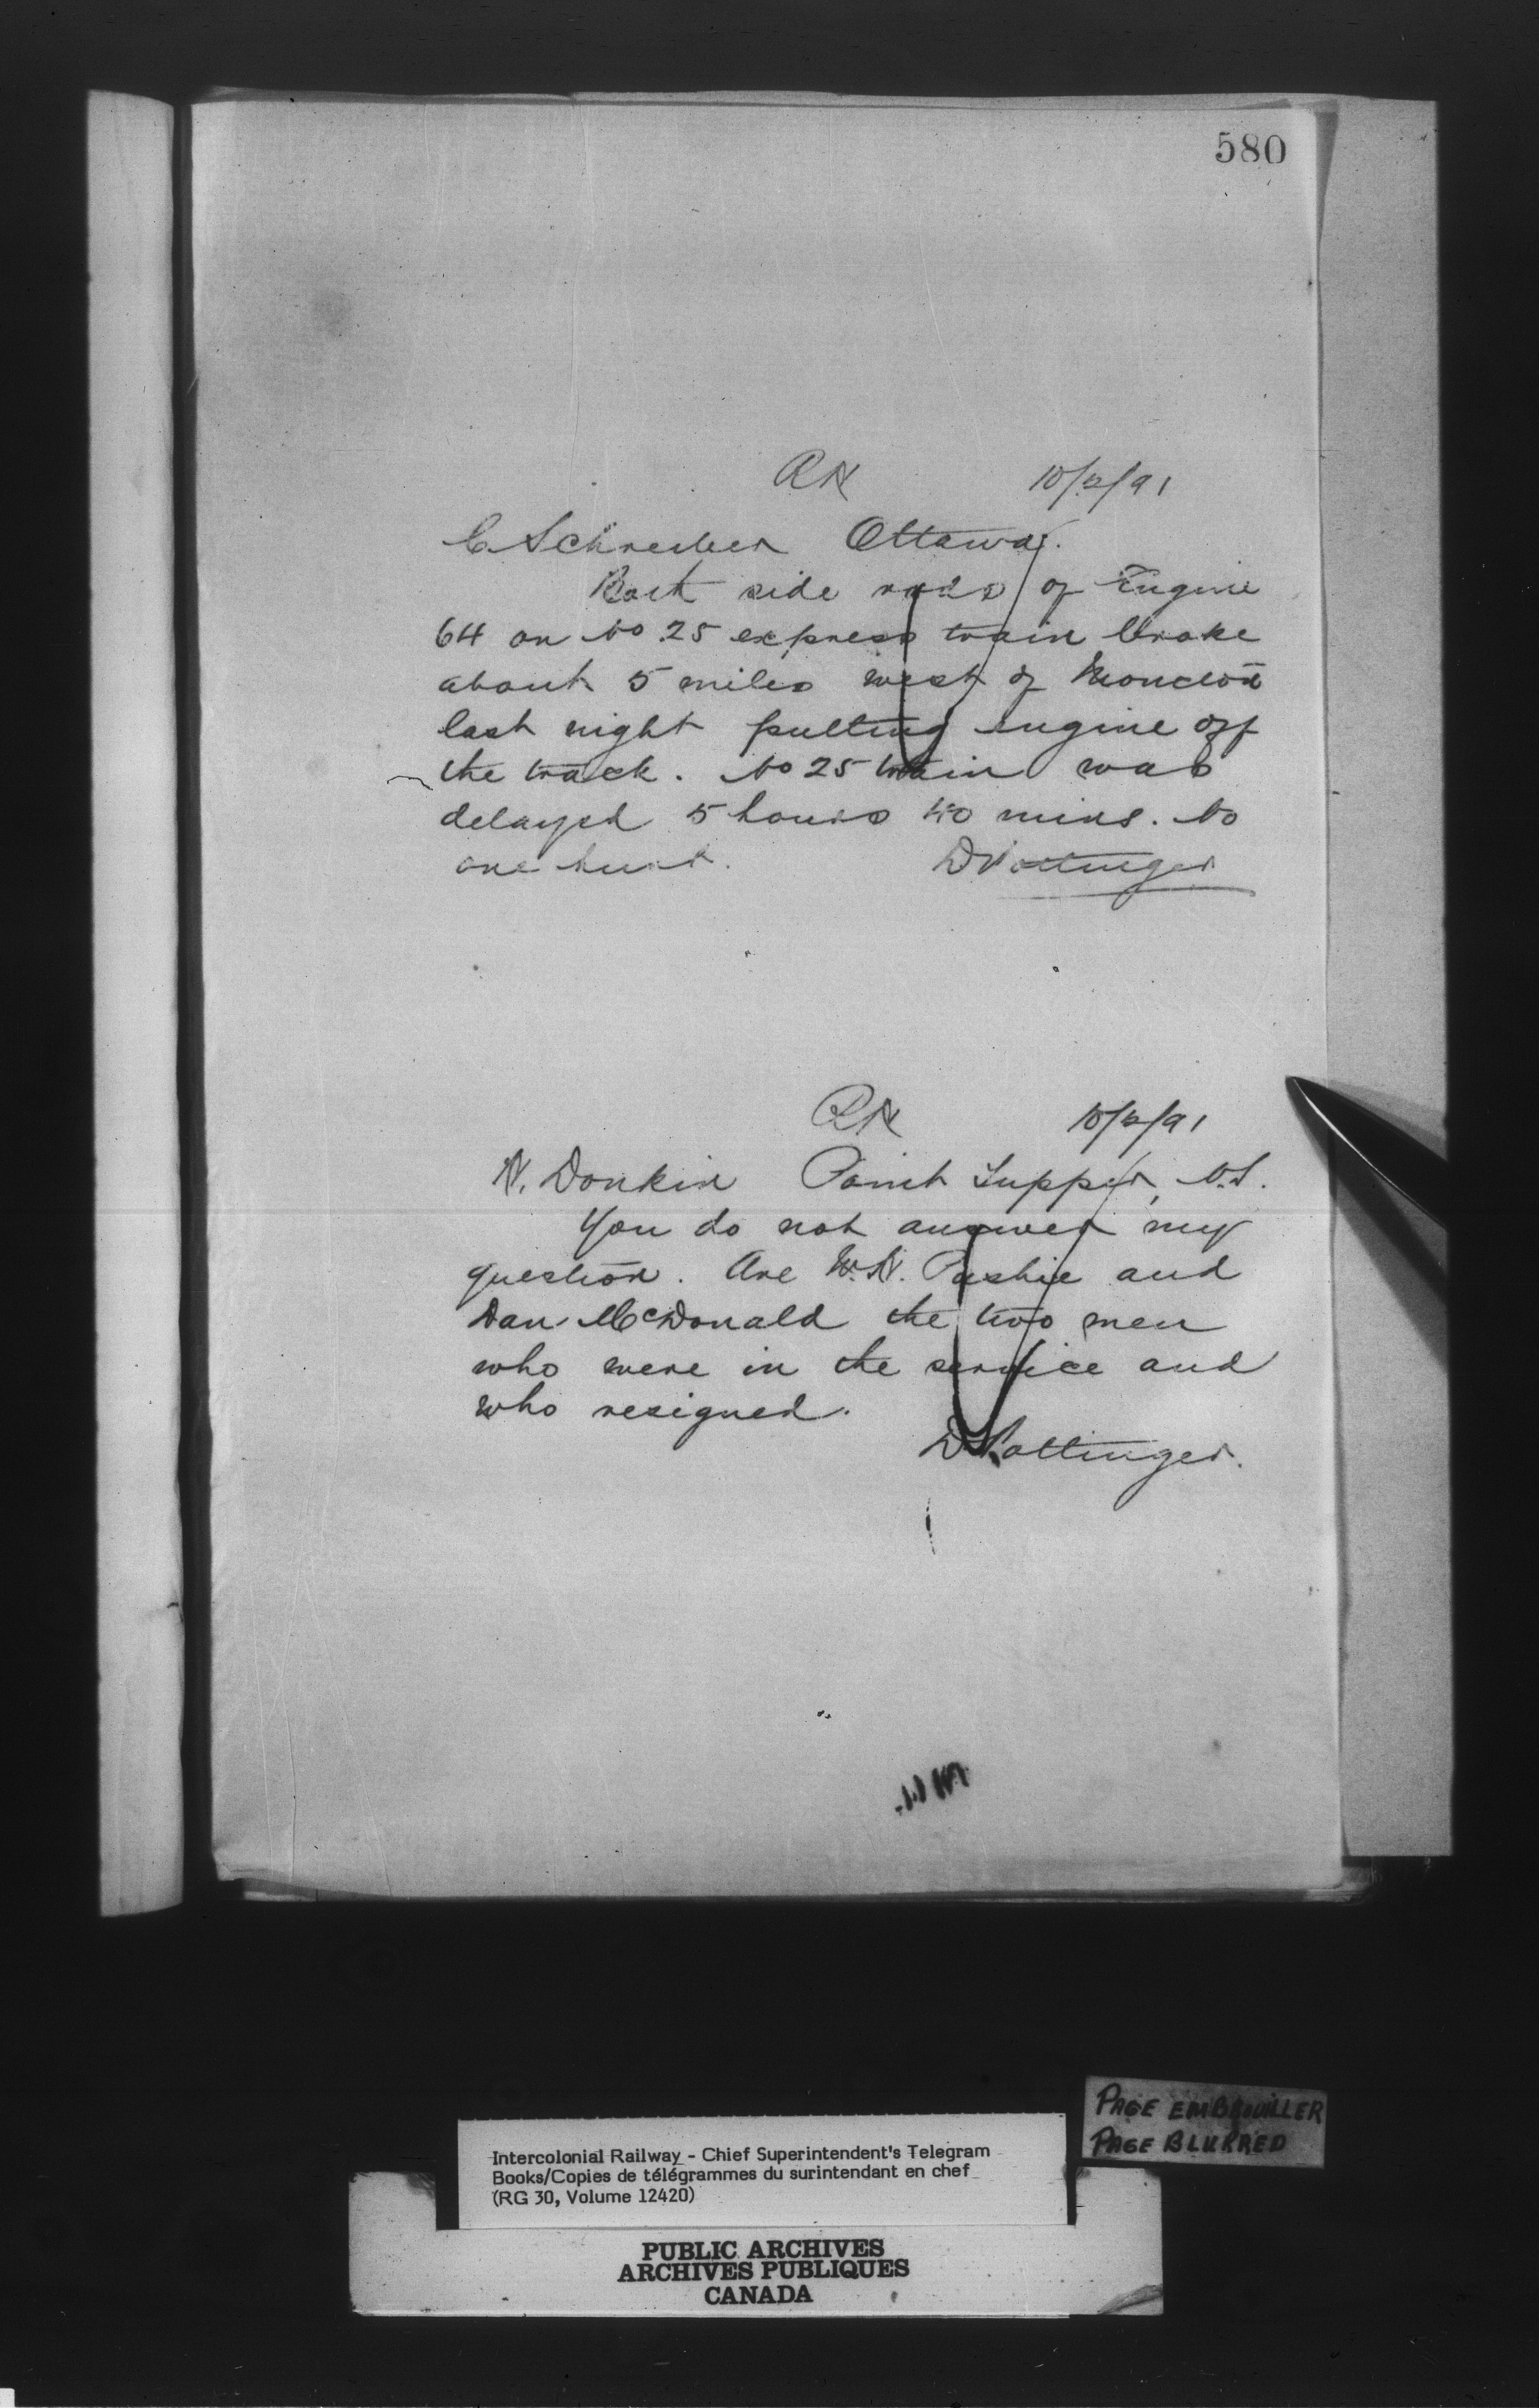 580
RN 10/2/91
C Schreiber Ottawa.
Both side rods of Engine
64 on No 25 express train broke
about 5 miles west of Moncton
last night putting engine off
the track. No 25 train was
delayed 5 hours 50 mins. No
one hurt. D Pottinger
RN 10/2/91
N. Donkin Point Tupper, N.S.
You do not answer my
question. Are W.N. Pashie and
Dan McDonald the two men
who were in the service and
who resigned.
D Pottinger.
PAGE EMBROUILLER
PAGE BLURRED
Intercolonial Railway - Chief Superintendent's Telegram
Books/Copies de télégrammes du surintendant en chef
(RG 30, Volume 12420)
PUBLIC ARCHIVES
ARCHIVES PUBLIQUES
CANADA